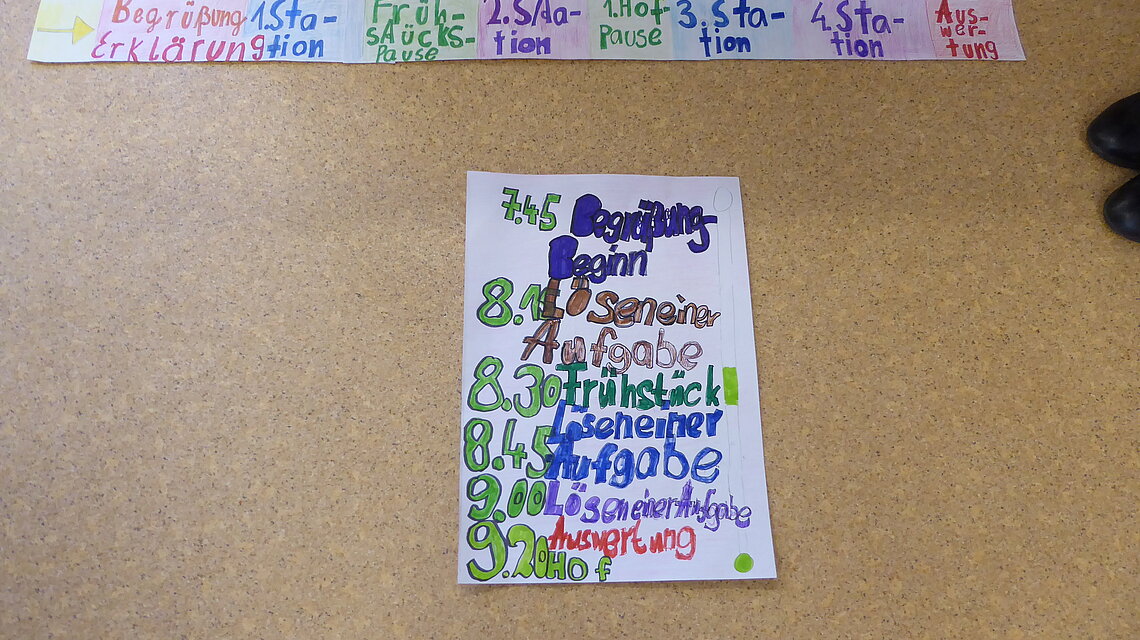 Begrüßung
Erklärung
1.Sta-
tion
Früh-
stücks-
Pause
2.Sta-
tion
1.Hof-
Pause
3.Sta-
tion
4.Sta-
tion
Aus-
wer-
tung
7.45 Begrüßung-
Beginn
8.15 Lösen einer
Aufgabe
8.30 Frühstück
Lösen einer
8.45 Aufgabe
9.00 Lösen einer Aufgabe
Auswertung
9.20 Hof